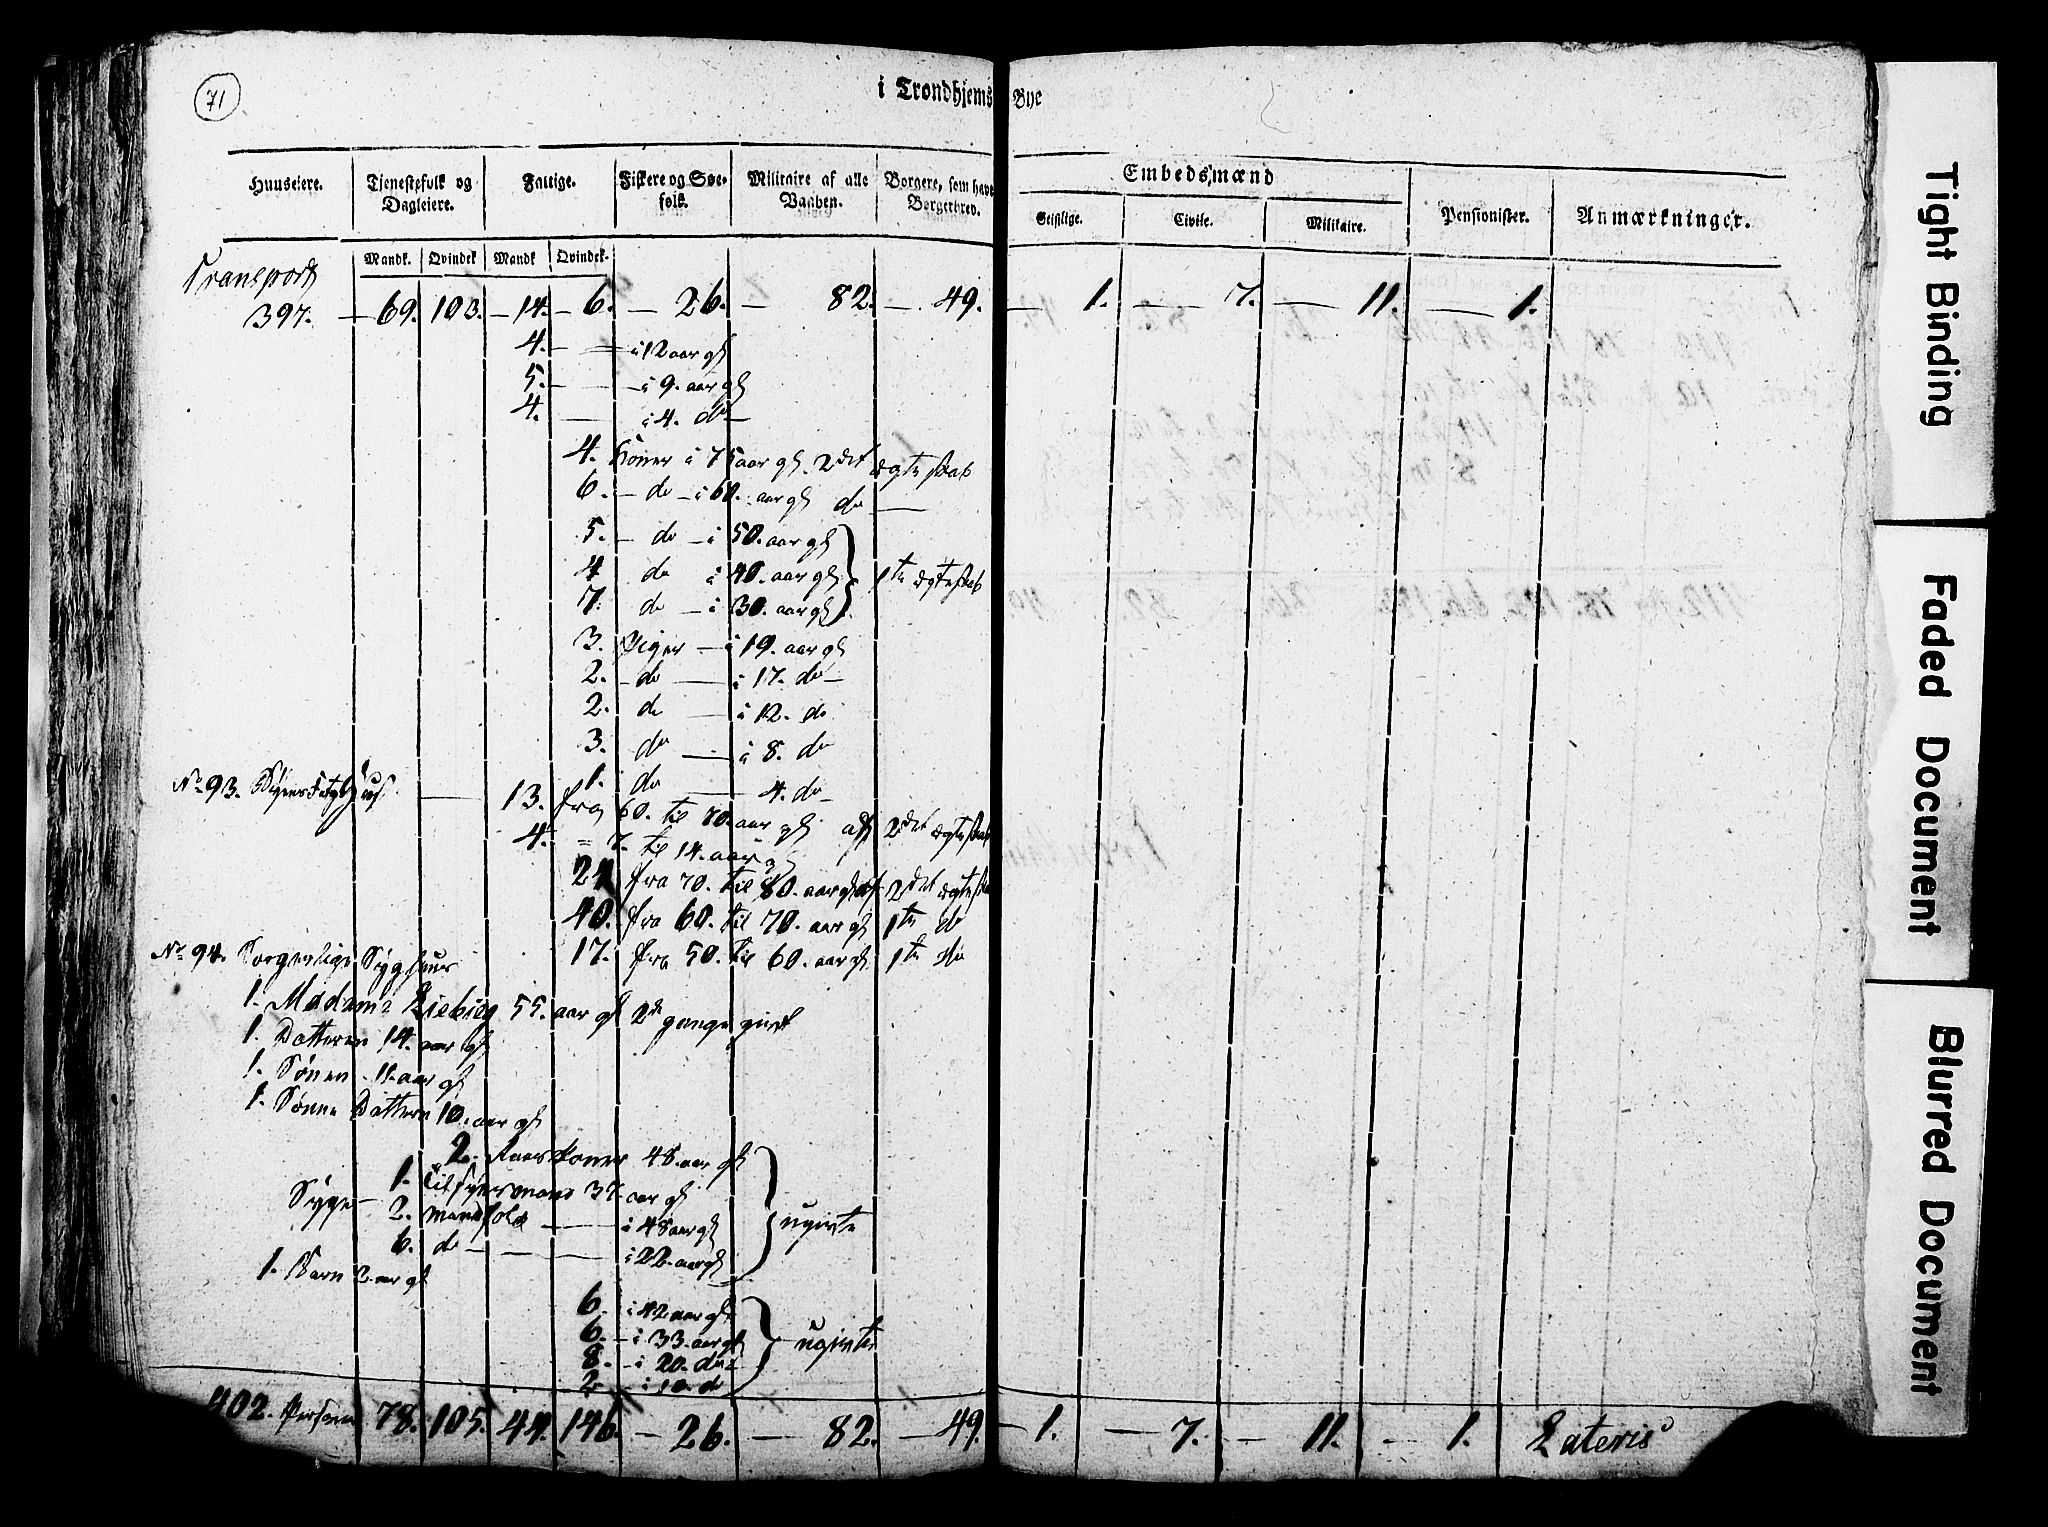 71
i Trondhjems Bye
Huuseiere. Tjenestefolk og Dagleiere. Fattige. Fiskere og Søe-folk. Militaire af alle Vaaben. Borgere, som have Borgerbrev. Embedsmænd Geistlige. Civile. Militaire. Pensionister. Anmærkninger.
Mandk. Qvindek Mandk Qvindek.
Transport
397. — 69. 103. — 14. — 6. — 26. — 82. — 49. — 1. — 7. — 11. — 1.
4. — — i 12 aar gl
5. — — i 9. aar gl
4. — i 4. do —
4. Koner i 75 aar gl. 2det ægteskab
6. — do — i 60. aar gl do —
5. — do — i 50. aar gl
4 do i 40. aar gl 1te ægteskab
7. do — i 30. aar gl
3. Piger — i 19. aar gl
2. — do — i 17. do —
2. do — i 12. do
3. do — i 8. do
1. do — 4. do —
No 93. — 13. fra 60. til 70. aar gl af 2det ægteskab
4. = 7. til 14. aar gl
24 fra 70. til 80. aar gl af 2det ægtesk
40. fra 60. til 70. aar gl 1te do
No 94. Sorgenlige Syghuus 17. fra 50. til 60. aar gl 1te do
1. Madame Liebieg 55. aar gl 2de gange givt
1. Datteren 14. aar gl
1. Sønen 11. aar gl
1. Sønne Dattern 10. aar gl
2. koner 48. aar gl
1. Tilsynsmand 37. aar gl
Syge — 2. mandfolk — i 48 aar gl ugivte
6. do — — — i 22. aar gl
1. Barn 2. aar gl
6. — i 42 aar gl
6. — i 33. aar gl ugivte
8. — i 20. do
2 — i 10. d
402. Personer 78. 105. 44. 146. — 26. — 82. — 49. — 1. — 7. — 11. — 1. Lateris
Tight Binding
Faded Document
Blurred Document